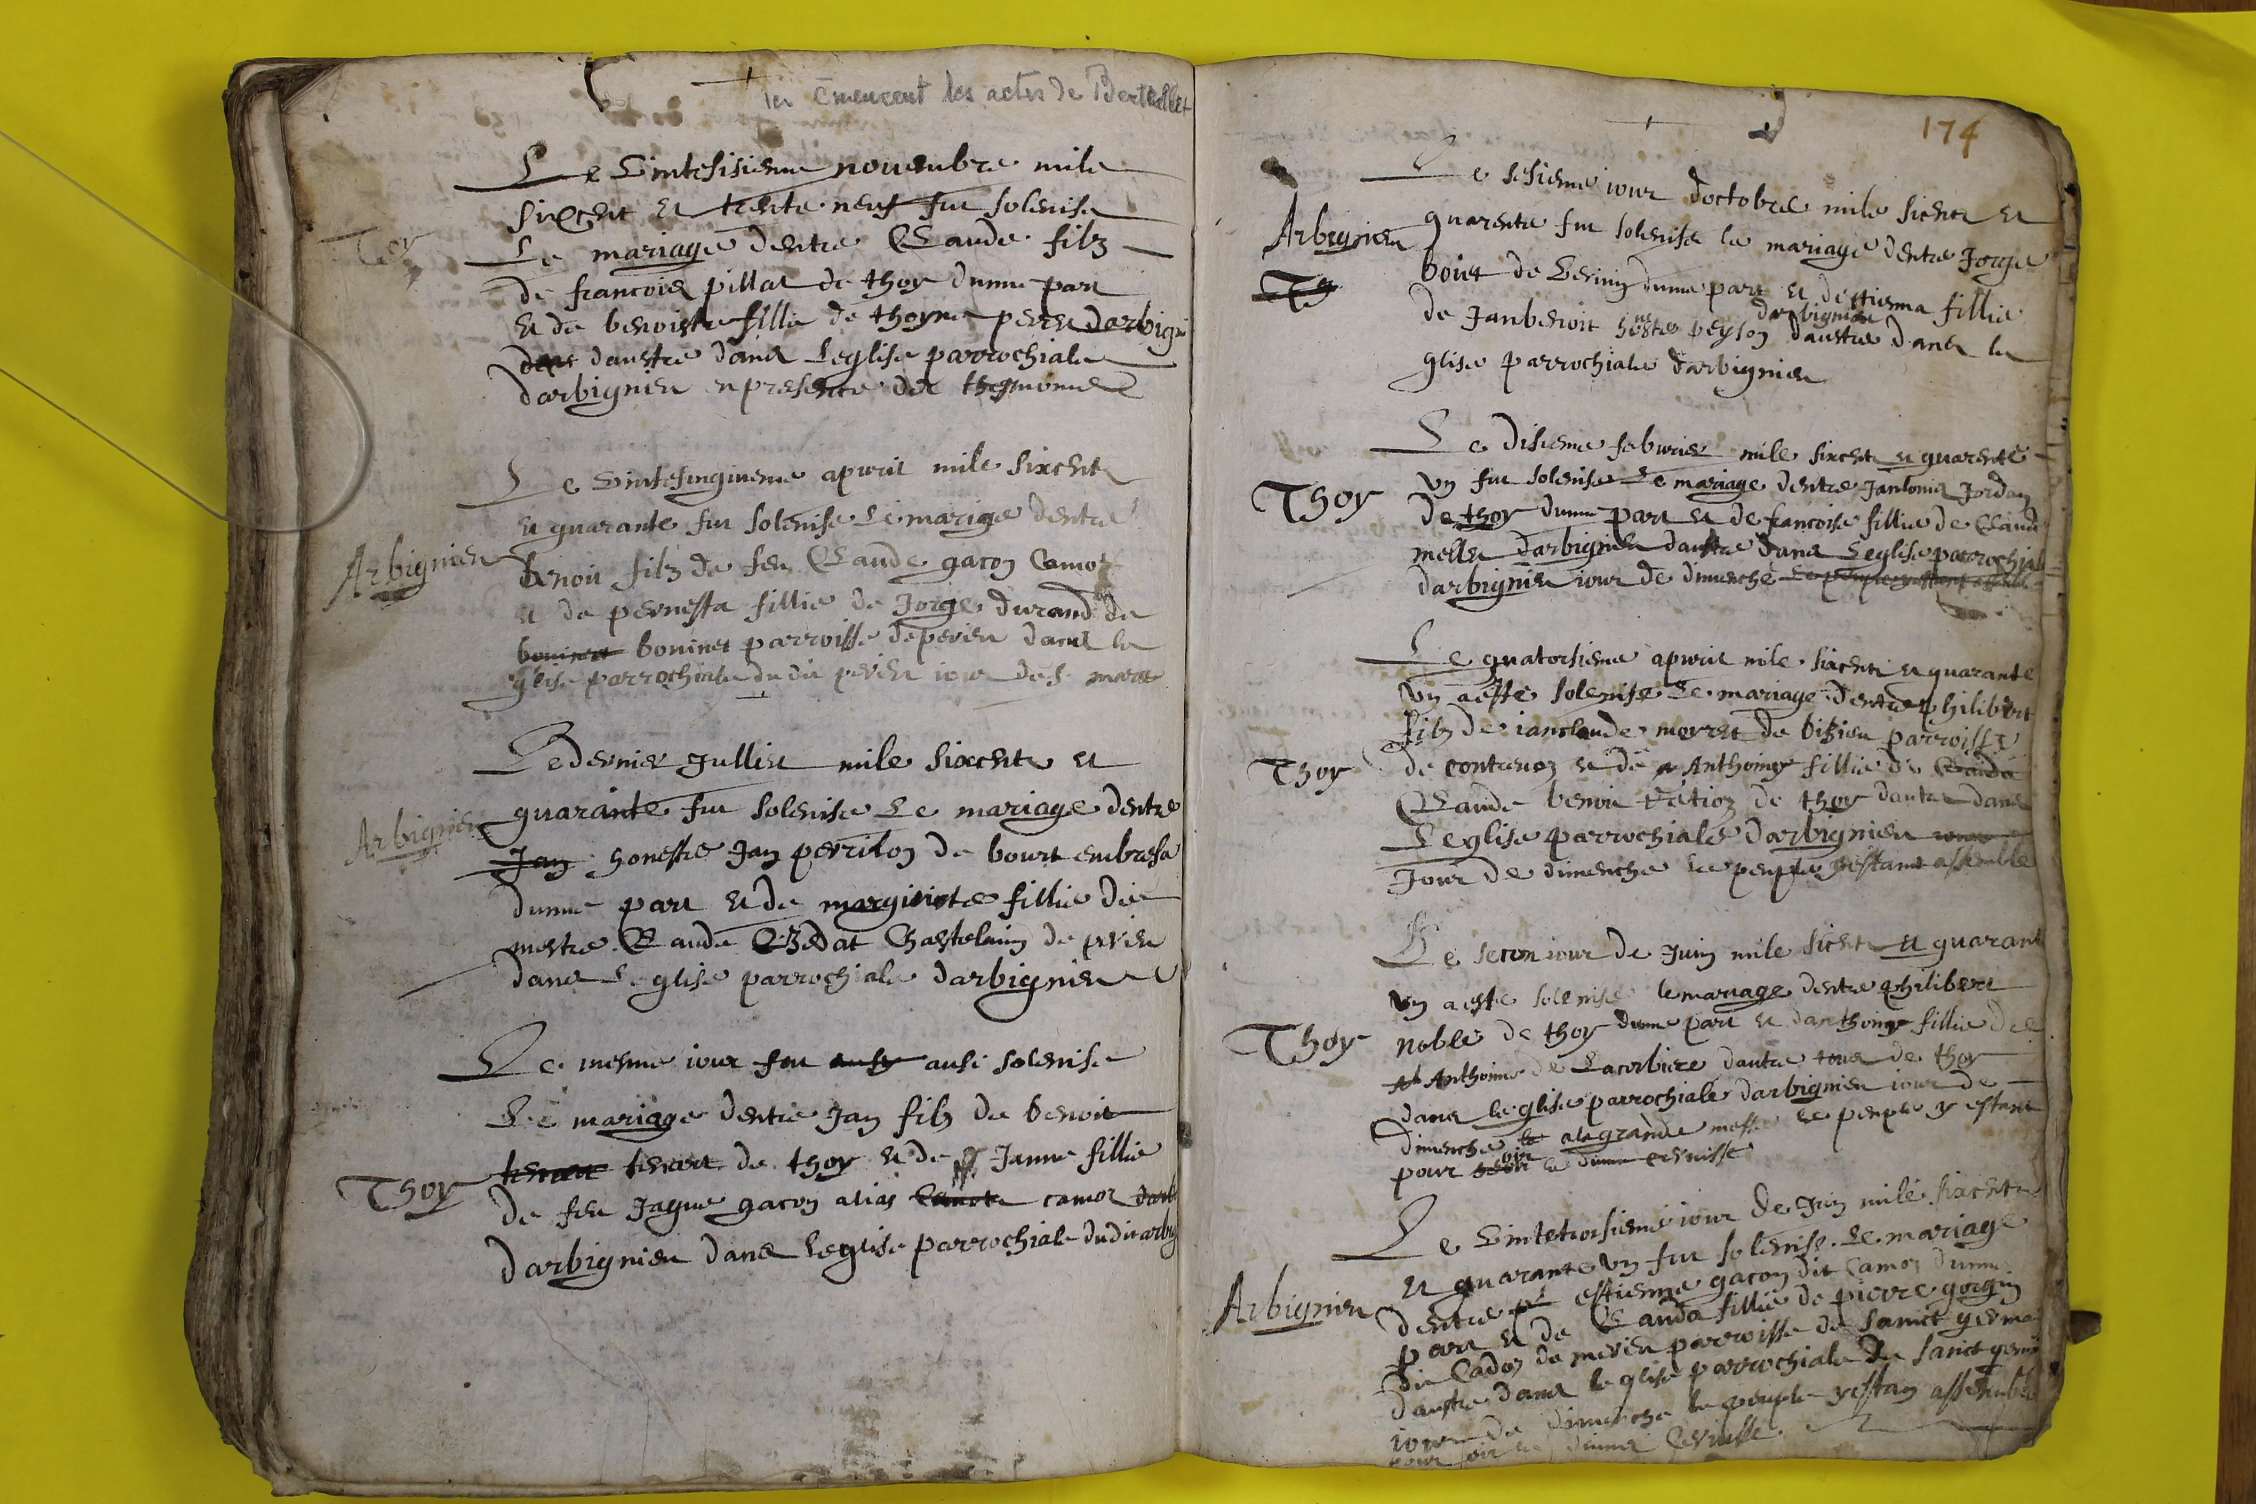 Ici cmencent les actes de Berthellet
Le Vintesisieme nouembre mile
sixcent et trente neuf fut solenise
Toy
Le mariage dentre Claude filz
de francois pillat de thoy dunne part
et de benoiste fillie de thoyne perru darbigni
daustre dans leglise parrochiale
darbignieu en presence des thesmoins
Le Vintesinquieme apwril mile sixcent
et quarante fut solenise Le mariage dentre
Arbignieu
benoit filz de feu Claude gacon Camoz
et de pernetta fillie de Jorge durand de
boninet parroisse de peyrieu dans le
glise parrochiale du dit peyrieu iour de s. marc
Le dernier Jullict mile sixcent et
quarante fut solenise Le mariage dentre
Arbignieu
Jan honestre Jan perrilon de bourt embresa
dunne part et de margueritte fillie de
mestre Claude Chastelaing de peyrieu
dans Leglise parrochiale darbignieu
Le mesme iour fut ausi solenise
Le mariage dentre Jan filz de benoit
tenart de thoy et de Janne fillie
Thoy
de feu Jaque gacon alias camoz
darbignieu dans Leglise parrochiale dudit arbig
174
Le sesieme iour doctobre mile sicent et
Arbignieu
quarente fut solenise le mariage dentre Jorge
Ty
boiet de dunne part et destienna fillie
darbignieu
de Janbenoit peyson daustre dans le
glise parrochiale darbignieu
Le disieme febwrier mile sixcent et quarente
un fut solenise Le mariage dentre Jantoine Jordan
Thoy
de thoy dunne part et de francoise fillie de Claude
mellu darbignieu daustre dans Leglise parrochial
darbignieu iour de dimenche
Le quatorsieme apwril mile sixcent et quarante
un aesté solenise Le mariage dentre philibert
filz de ianclaude morret de bizieu parroisse
Thoy
de contrevoz et de Anthoine fillie de
Claude benoit de thoy dautre dans
Leglise parrochiale darbignieu
Jour de dimenche le peuple yestant assemble
Le secon iour de Juin mile sicent et quarant
un aesté solenise le mariage dentre philibert
Thoy
noble de thoy dunne part et danthoine fillie de
Anthoine de Lacorbiere dautre tous de thoy
dans leglise parrochiale darbignieu iour de
dimenche alagrande messe le peuple y estant
pour oir le divin servisse
Le Vintetroisieme iour de Juin mile sixcent
et quarante un fut solenise Le mariage
Arbignieu
dentre estienne gacon dit Camoz dunne
part et de Clauda fillie de pierre gogin
dit Cadoz de meyrieu parroisse de sainct germa
daustre dans leglise parrochiale de sainct germ
iour de dimenche le peuple yestan assemble
pour oir le divin servisse